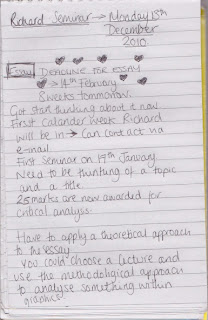 Richard Seminar → Monday 13th
December
2010
Essay DEADLINE FOR ESSAY
→ 14th February
Sweets tommorow.
Got start thinking about it now
First Calander Week Richard
will be in → Can contact via
e-mail
First Seminar on 17th January
Need to be thinking of a topic
and a title.
25 marks are now awarded for
critical analysis.
Have to apply a theoretical approach
to the essay
You could choose a lecture and
use the methodological approach
to analyse something within
graphics.